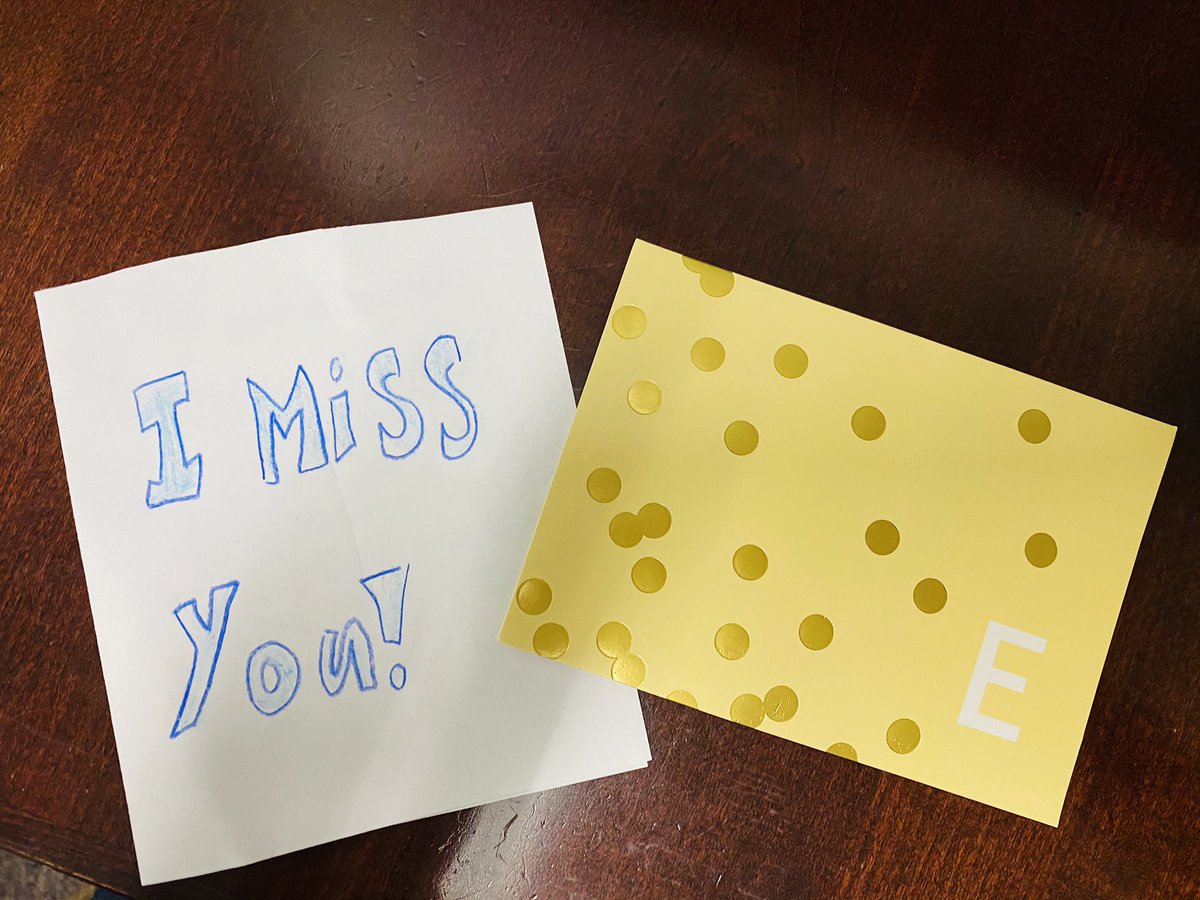 I Miss
You!
E